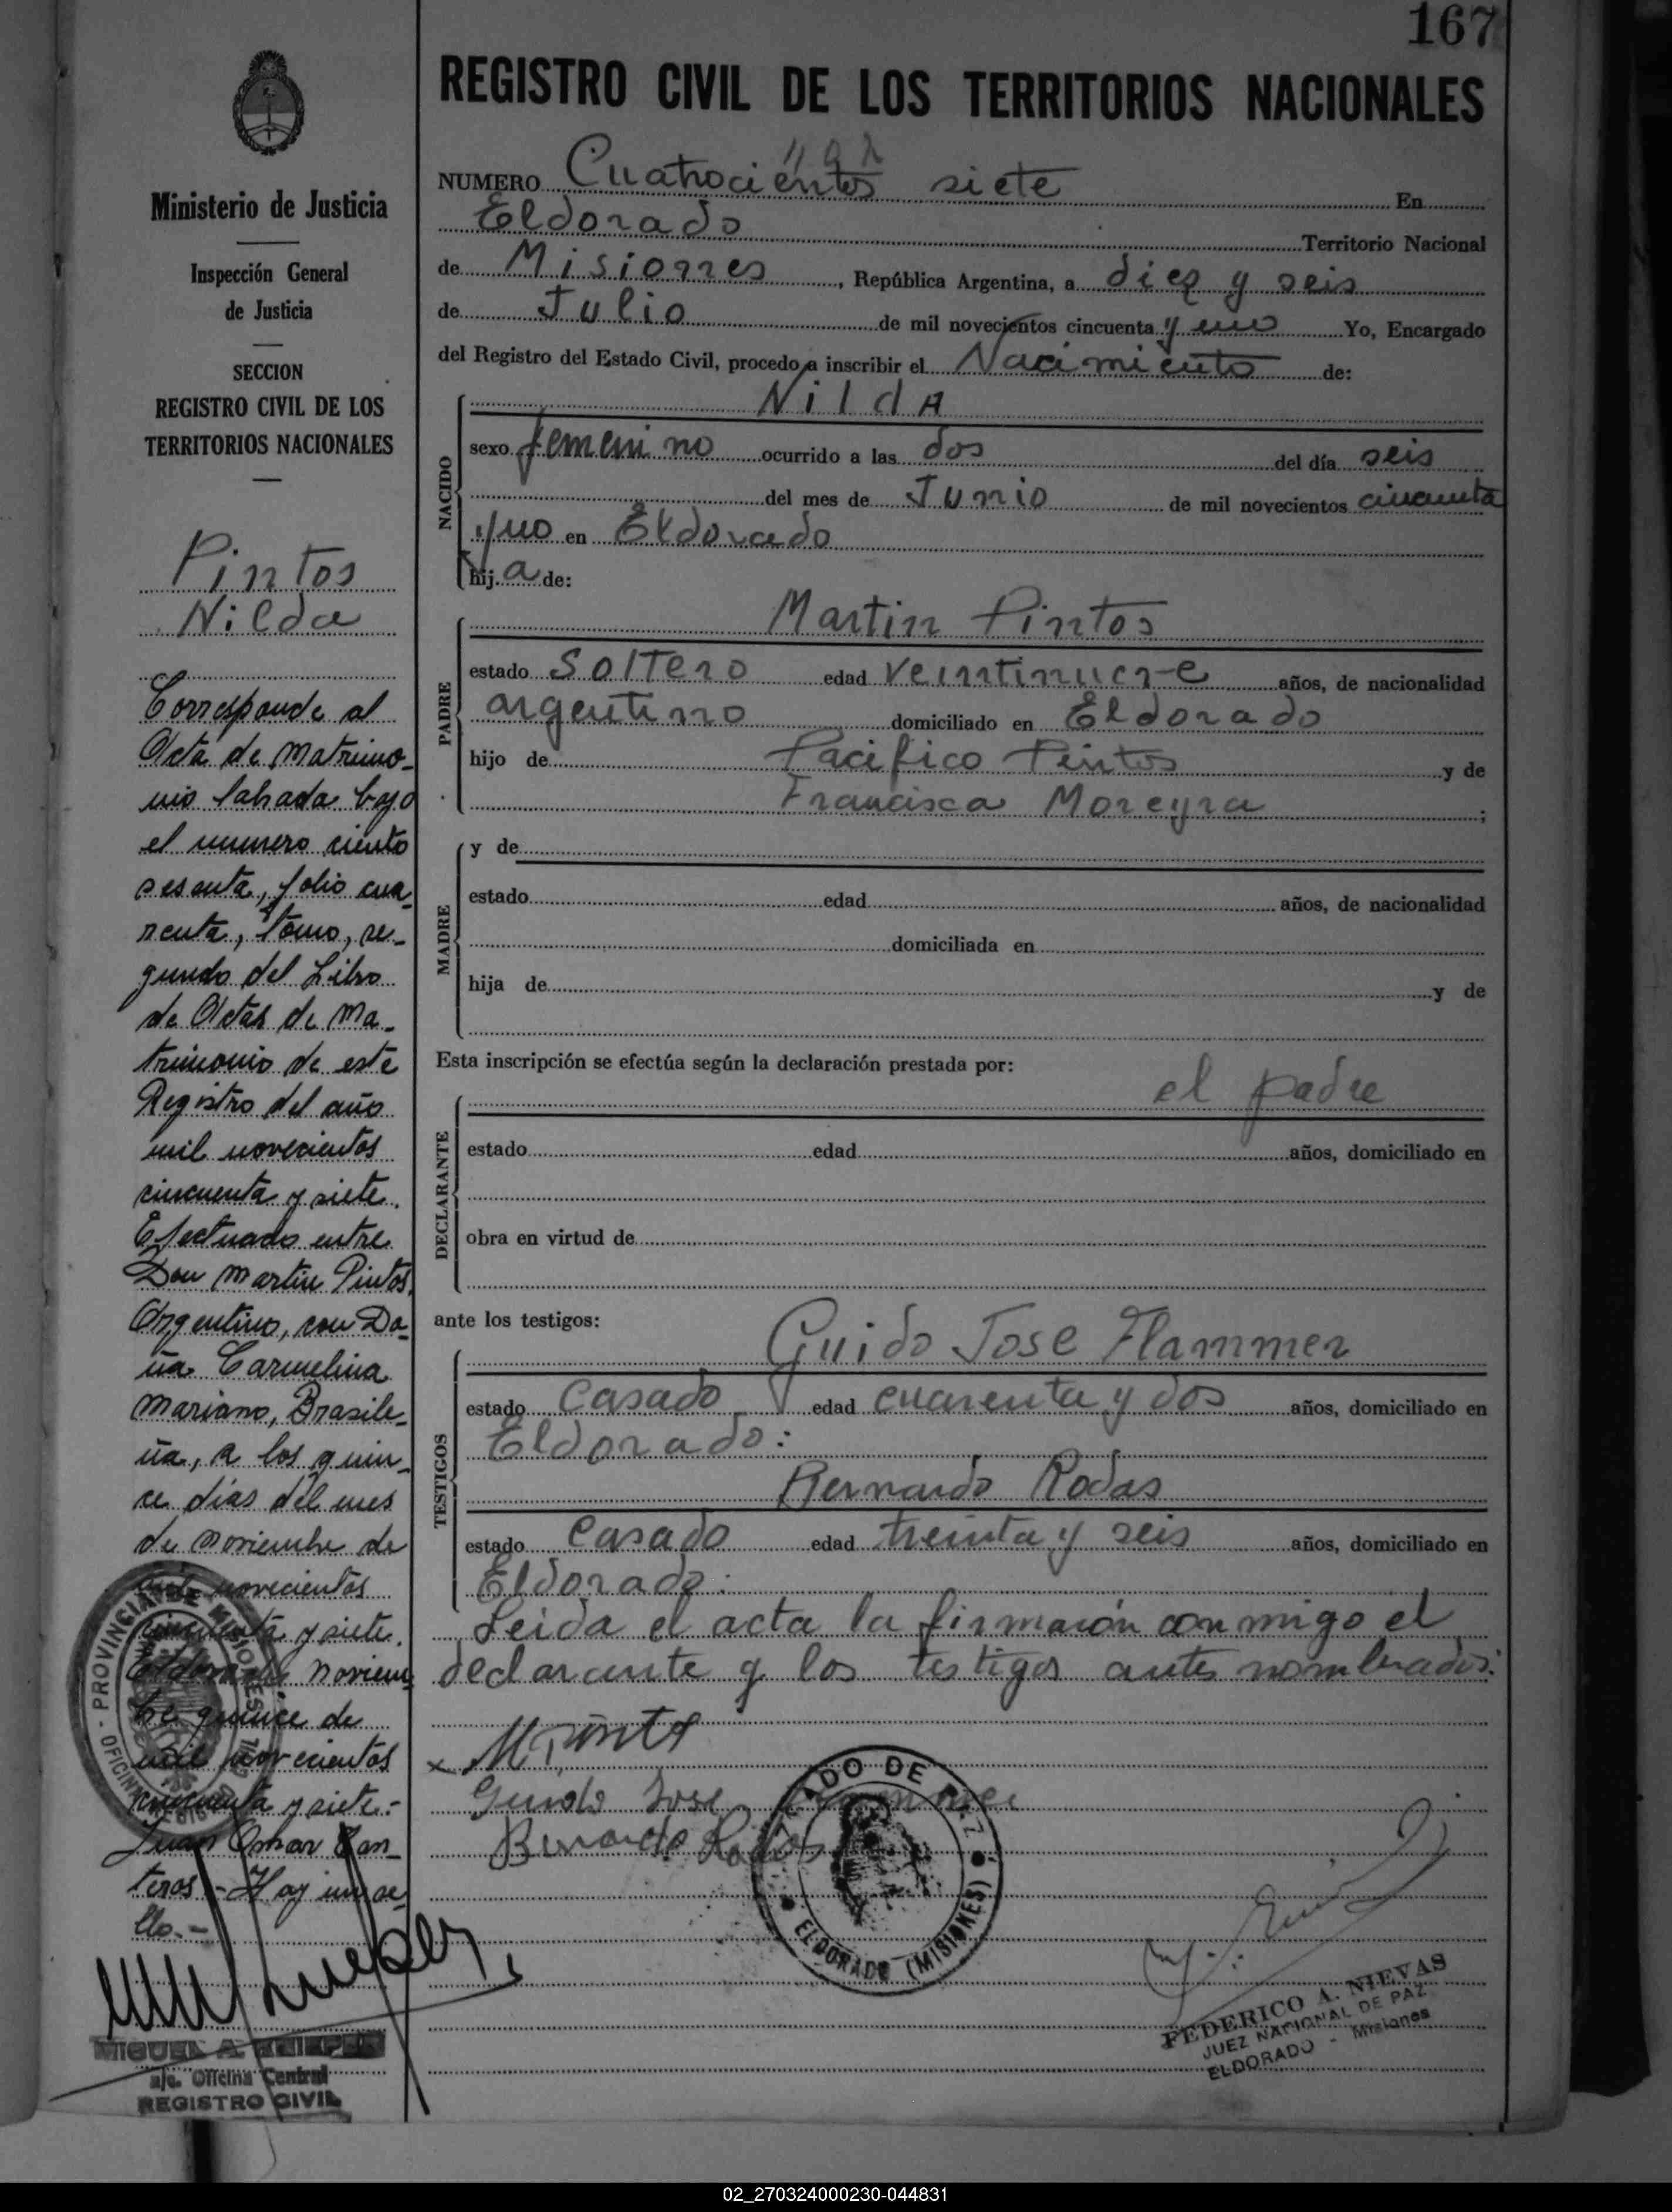 167
REGISTRO CIVIL DE LOS TERRITORIOS NACIONALES
Ministerio de Justicia
Inspección General
de Justicia
SECCION
REGISTRO CIVIL DE LOS
TERRITORIOS NACIONALES
Pintos
Nilda
Corresponde al
Acta de Matrimo-
nio labrada bajo
el numero ciento
sesenta, folio cua-
renta, tomo, se-
gundo del Libro
de Actas de Ma-
trimonio de este
Registro del año
mil novecientos
cincuenta y siete.
Efectuado entre
Don Martin Pintos,
Argentino, con Do-
ña Carmelina
Mariano, Brasile-
ña, a los quin-
ce días del mes
de noviembre de
mil novecientos
cincuenta y siete.
Eldorado, noviem
bre quince de
mil novecientos
cincuenta y siete.-
Juan Omar Can-
teros.- Hay un se
llo.-
PROVINCIA DE MISIONES
MIGUEL A.
a/c. Oficina Central
REGISTRO CIVIL
NUMERO Cuatrocientos siete En
Eldorado Territorio Nacional
de Misiones, República Argentina, a diez y seis
de Julio de mil novecientos cincuenta y uno Yo, Encargado
del Registro del Estado Civil, procedo a inscribir el Nacimiento de:
NACIDO
Nilda
sexo femenino ocurrido a las dos del día seis
del mes de Junio de mil novecientos cincuenta
y uno en Eldorado
hij a de:
PADRE
Martin Pintos
estado Soltero edad veintinueve años, de nacionalidad
argentino domiciliado en Eldorado
hijo de Pacifico Pintos y de
Francisca Moreyra ;
MADRE
y de
estado edad años, de nacionalidad
domiciliada en
hija de y de
Esta inscripción se efectúa según la declaración prestada por:
DECLARANTE
el padre
estado edad años, domiciliado en
obra en virtud de
ante los testigos:
TESTIGOS
Guido Jose Flammer
estado Casado edad cuarenta y dos años, domiciliado en
Eldorado:
Bernardo Rodas
estado Casado edad treinta y seis años, domiciliado en
Eldorado:
Leida el acta la firmarón conmigo el
declarante y los testigos antes nombrados:
x M Pintos
Guido Jose Flammer
Bernardo Rodas
ADO DE PAZ
ELDORADO (MISIONES)
FEDERICO A. NIEVAS
JUEZ NACIONAL DE PAZ
ELDORADO - Misiones
02_270324000230-044831